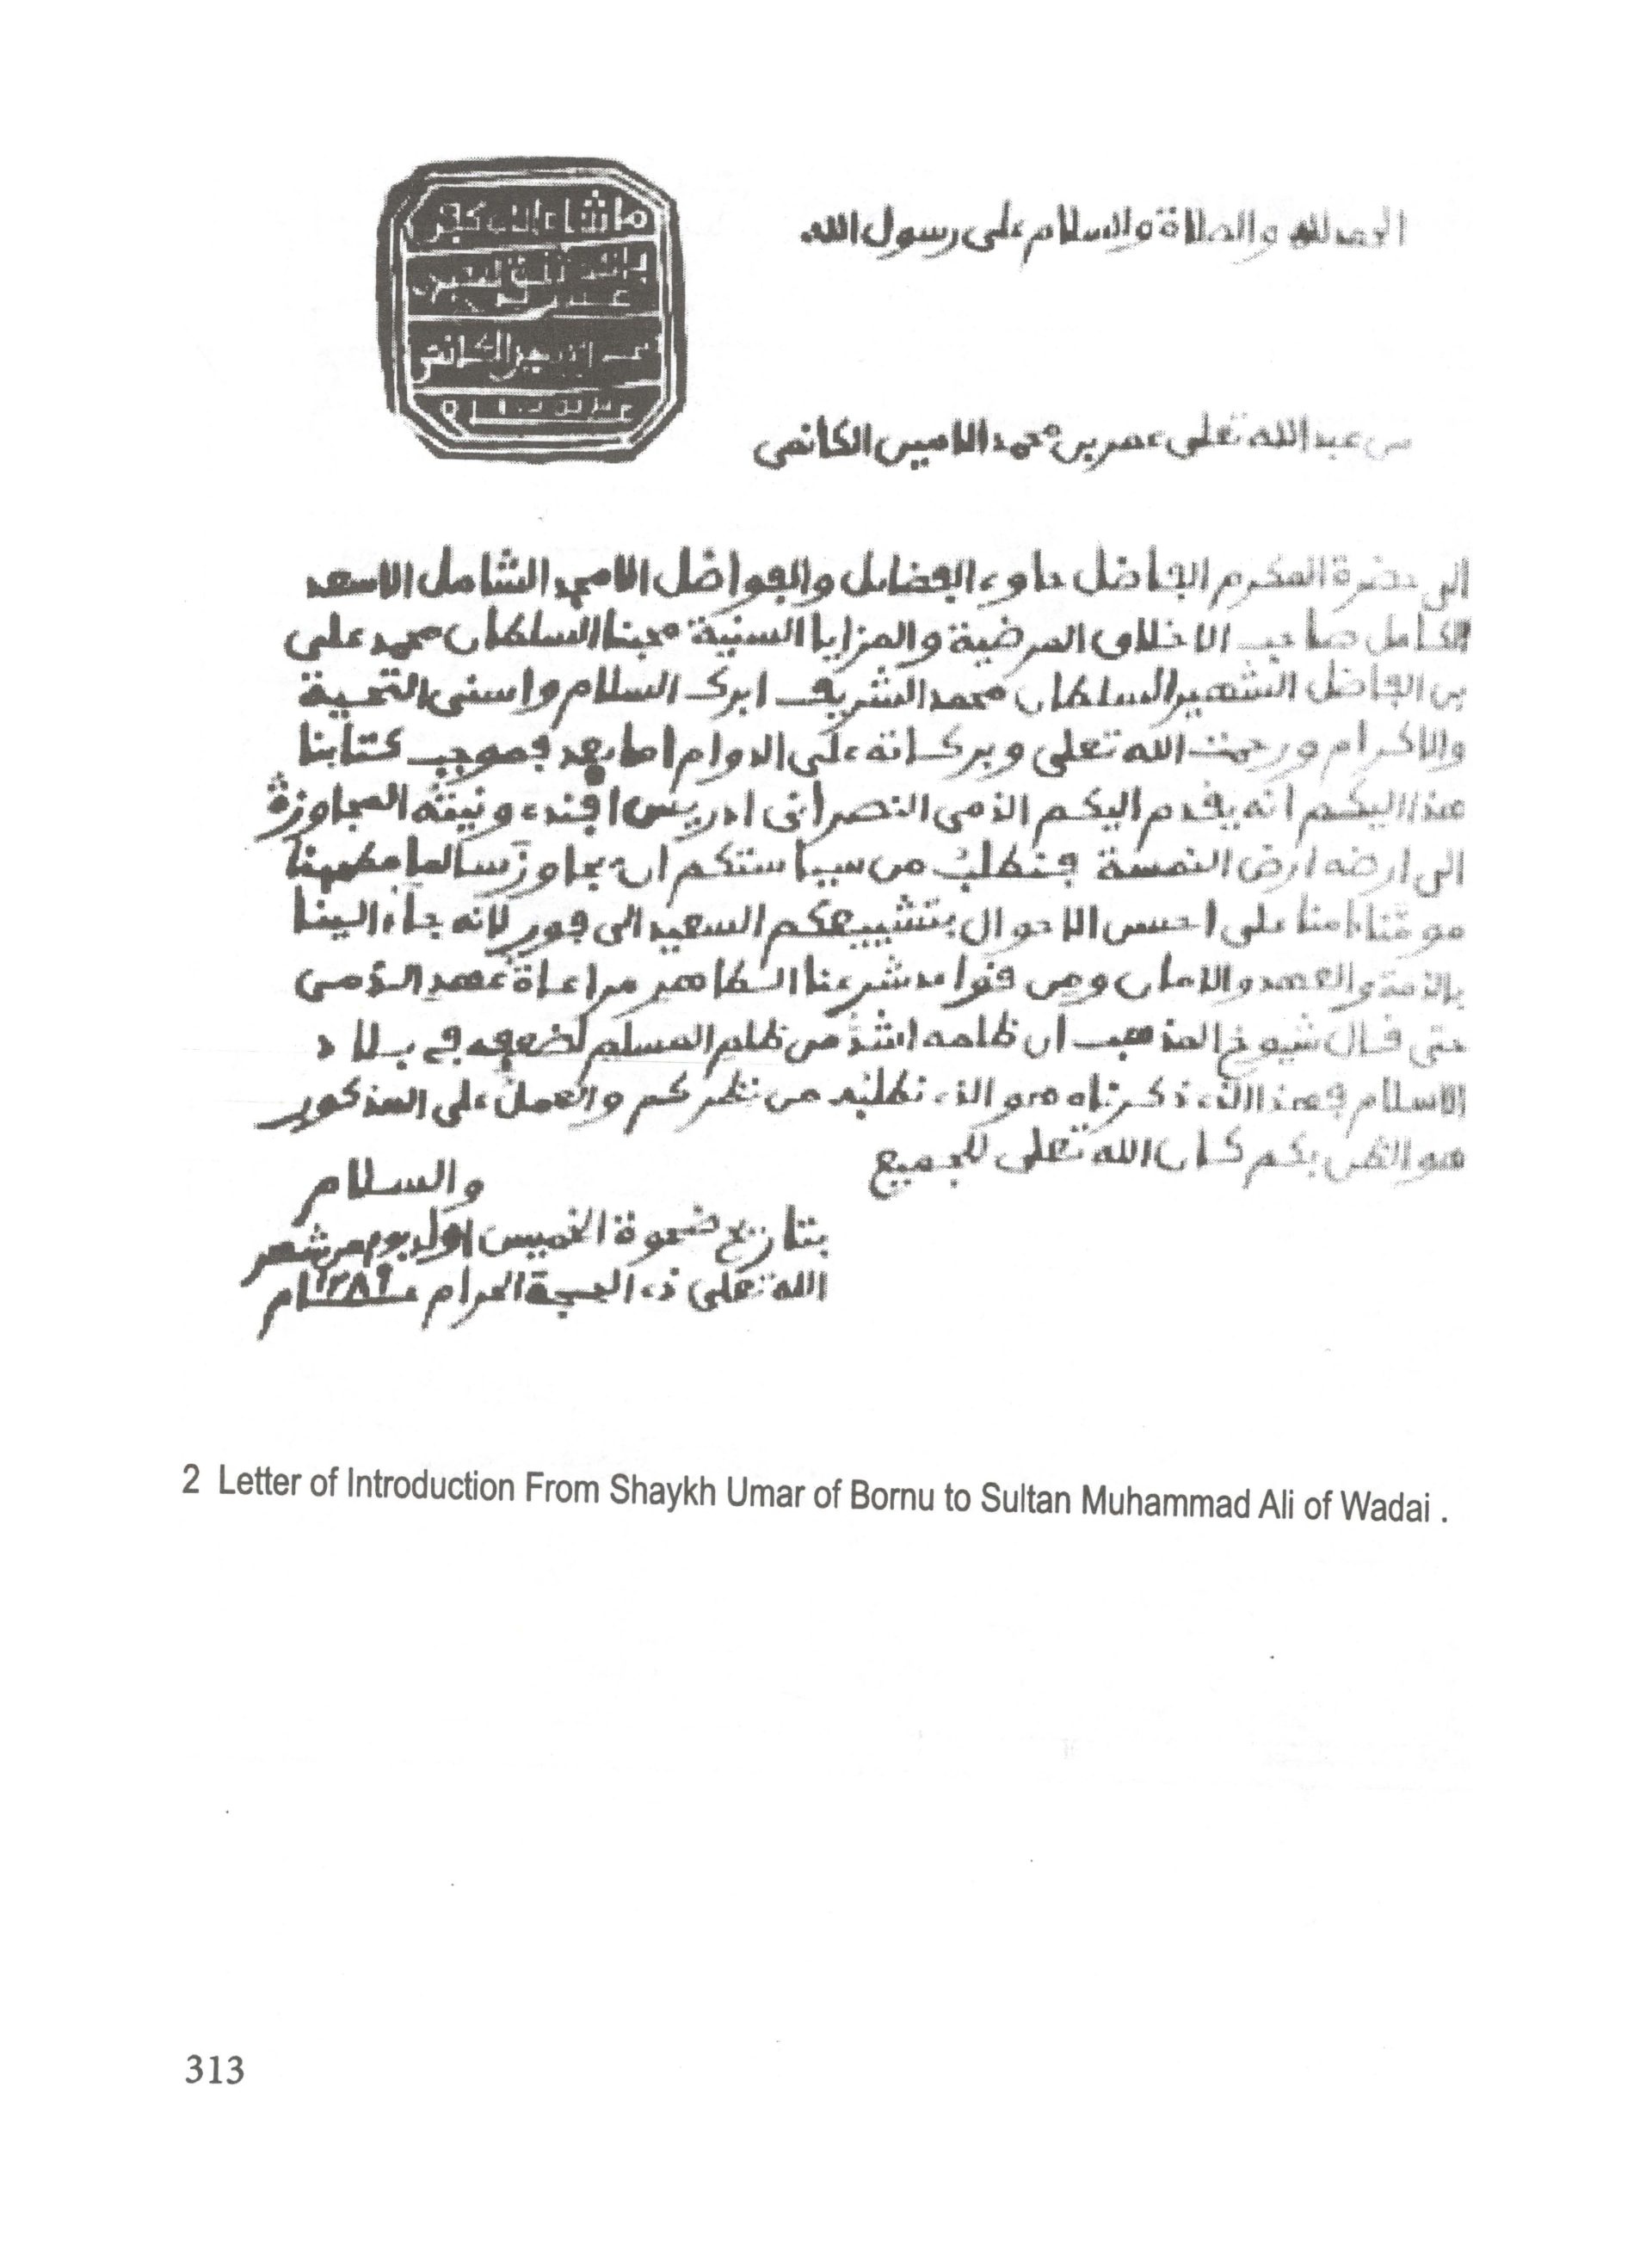 الحمد لله والصلاة والسلام على رسول الله
ما شاء الله
من عبد الله تعلى عمر بن محمد الامين الكانمى
الى حضرة المكرم الفاضل حاوى الفضايل والفواضل الامجد الشامل الاسعد
الكامل صاحب الاخلاق المرضية والمزايا السنية محبنا السلطان محمد على
بن الفاضل الشهير السلطان محمد الشريف ابرك السلام واسنى التحية
والاكرام ورحمت الله تعلى وبركاته على الدوام اما بعد فموجب كتابنا
هذا اليكم انه يقدم اليكم الذمى النصرانى ادريس افندى ونيته المجاوزة
الى ارضه ارض النمسة فنطلب من سياستكم ان يجاوز سالما
على احسن الاحوال بتشييعكم السعيد الى فور لانه جاء الينا
بالذمة والعهد والامان ومن قواعد شرعنا الطاهر مراعاة عهد الذمى
حتى قال شيوخ المذهب ان ظلمه اشد من ظلم المسلم لضعفه في بلاد
الاسلام فهذا الذى ذكرناه هو الذى نطلبه من نظركم والعمل على المذكور
هو الظن بكم كان الله تعلى للجميع
والسلام
بتاريخ ضحوة الخميس اول يوم من شهر
الله تعلى ذى الحجة الحرام ١٢٨٩ام
2 Letter of Introduction From Shaykh Umar of Bornu to Sultan Muhammad Ali of Wadai .
313